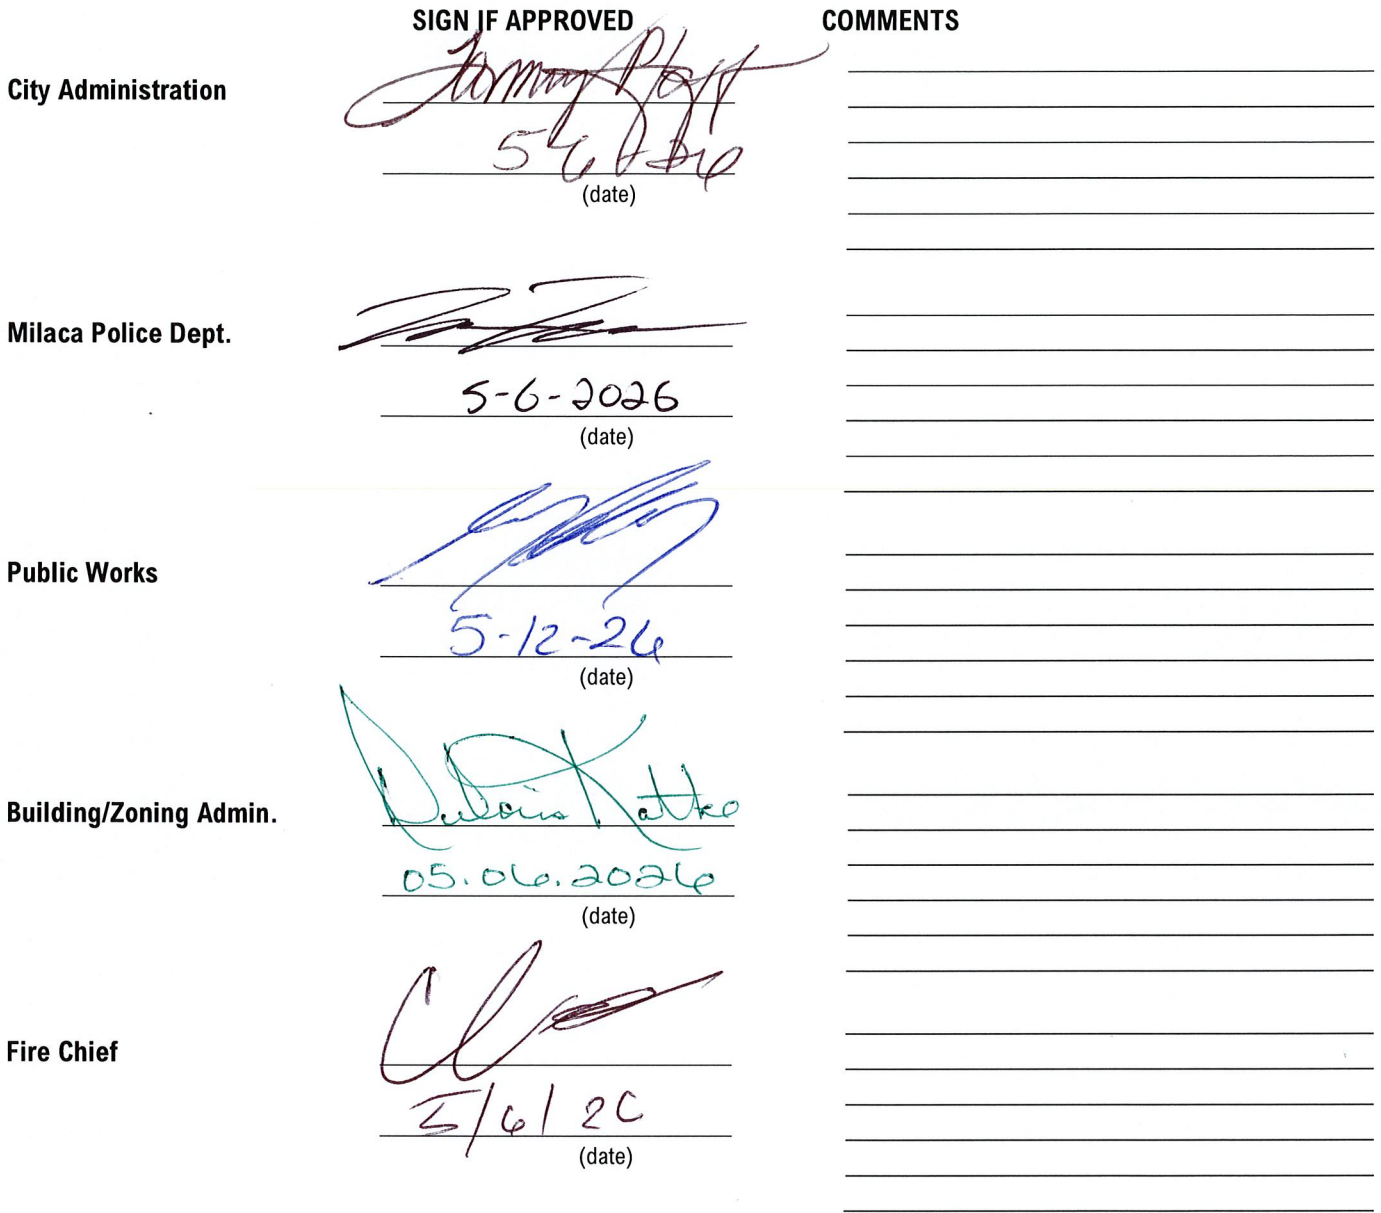 SIGN IF APPROVED COMMENTS
City Administration
(date)
Milaca Police Dept.
5-6-2026
(date)
Public Works
5-12-26
(date)
Building/Zoning Admin.
05.06.2026
(date)
Fire Chief
5/6/26
(date)